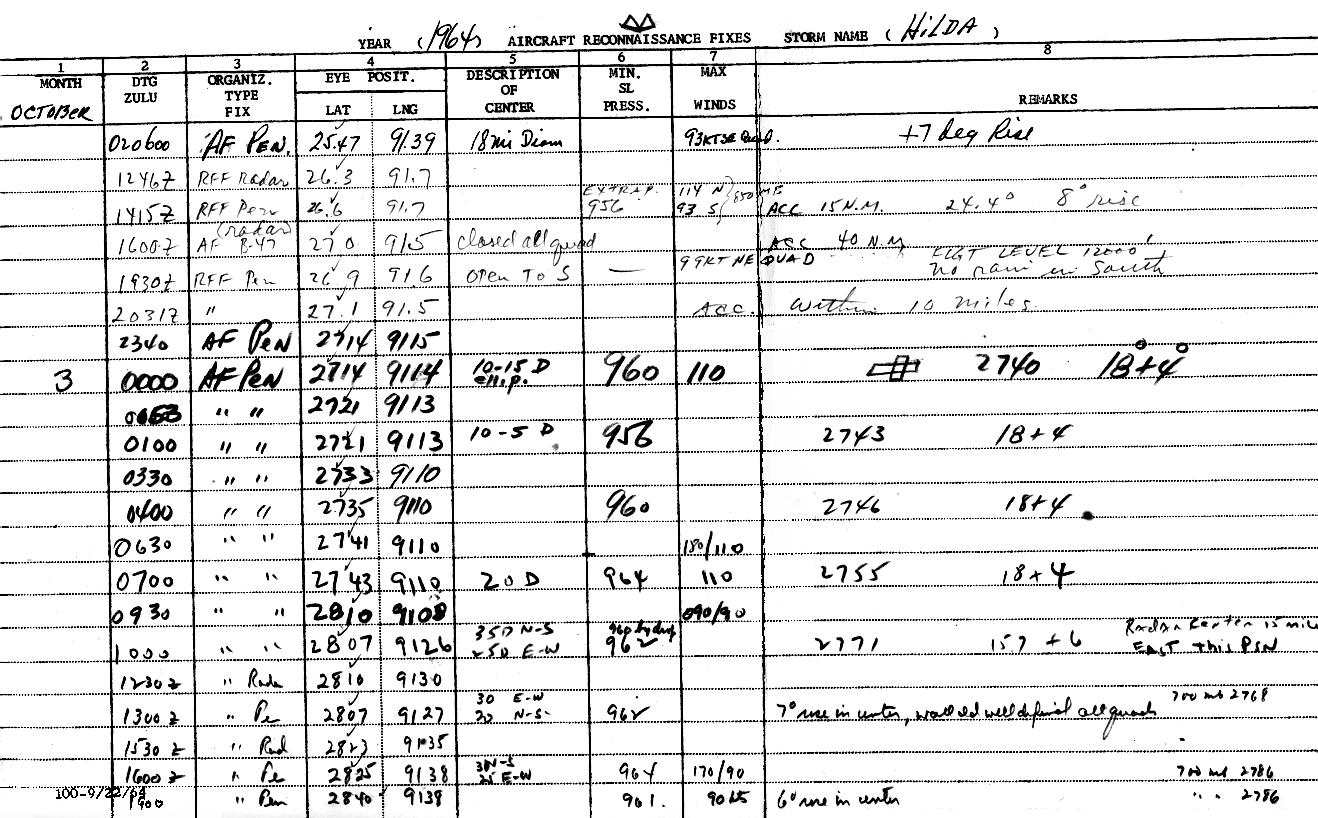 YEAR (1964) AIRCRAFT RECONNAISSANCE FIXES STORM NAME (HILDA)
1 2 3 4 5 6 7 8
MONTH DTG ZULU ORGANIZ. TYPE FIX EYE POSIT. LAT LNG DESCRIPTION OF CENTER MIN. SL PRESS. MAX WINDS REMARKS
OCTOBER
020600 AF PEN. 25.47 9139 18 mi Diam 93KT SE Quad. +7 deg Rise
1246Z RFF Radar 26.3 91.7
1415Z RFF Pen 26.6 91.7 EXTRAP. 956 114 N 93 S } 850 MB ACC 15 N.M. 24.4° 8° rise
1600Z AF B-47 (radar) 270 91.5 closed all quad ACC 40 N.M.
1930Z RFF Pen 26.9 91.6 OPEN TO S — 99KT NE QUAD FLGT LEVEL 12000' no rain in South
2031Z " 27.1 91.5 ACC. within 10 miles.
2340 AF PEN 2714 9115
3 0000 AF PEN 2714 9114 10-15 D ellip. 960 110 2740 18°+4°
" " 2721 9113
0100 " " 2721 9113 10-5 D 956 2743 18+4
0330 " " 2733 9110
0400 " " 2735 9110 960 2746 18+4
0630 " " 2741 9110 180/110
0700 " " 2743 9110 20 D 964 110 2755 18+4
0930 " " 2810 9108 090/90
1000 " " 2807 9126 35D N-S 25D E-W 960 by drop 962 2771 157 +6 Radar Center 15 mile EAST this PSN
1230Z " Radar 2810 9130
1300Z " Pen 2807 9127 30 E-W 20 N-S 962 7° rise in center, wall cld well defined all quads 700 mb 2768
1530Z " Rad 2823 9135
1600Z " Pen 2825 9138 N-S E-W 964 170/90 700 mb 2786
1900 " Pen 2840 9138 961. 90 kts 6° rise in center " " 2786
100-9/22/64